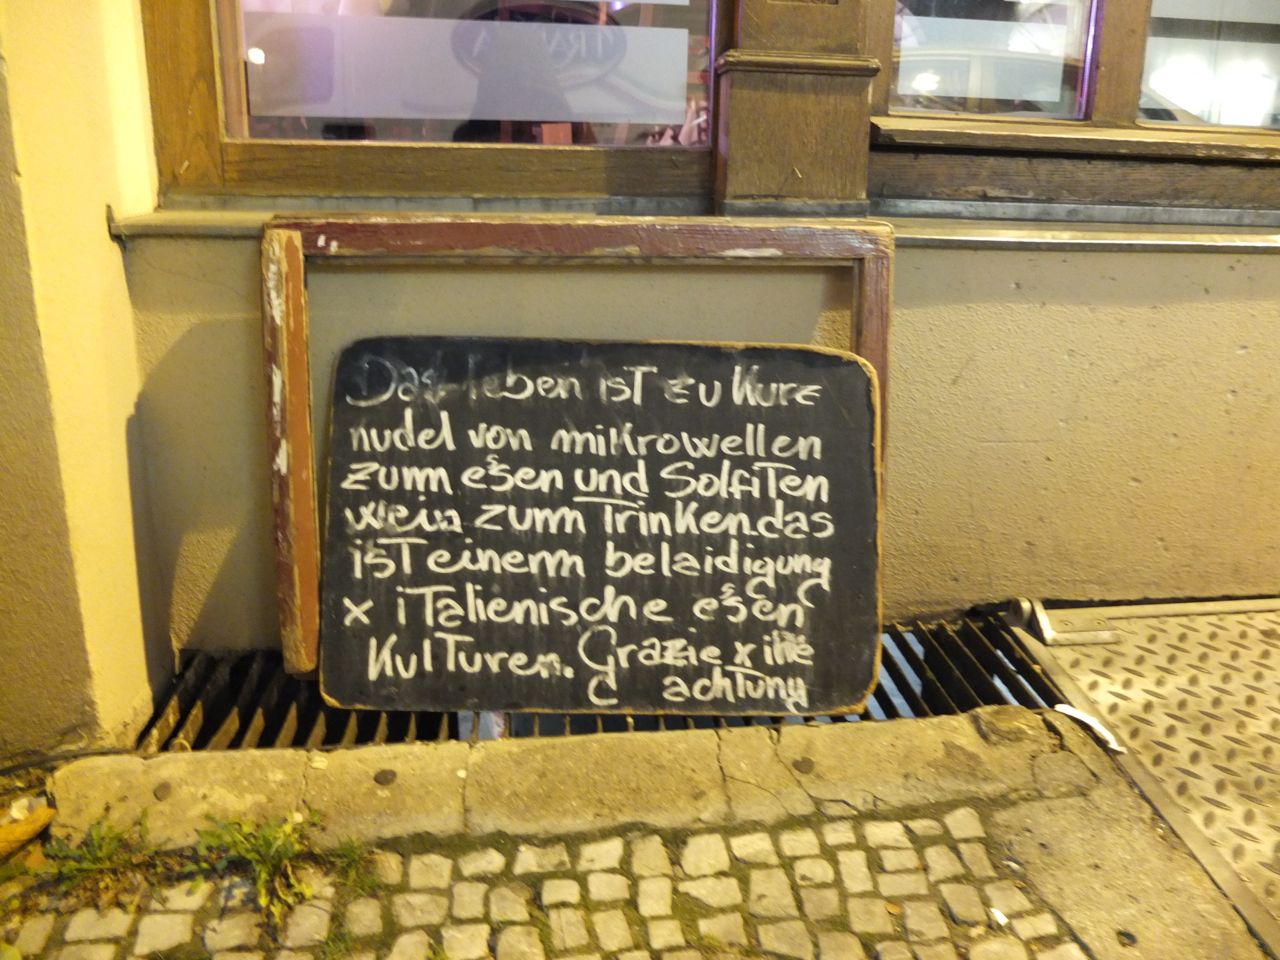 Das leben isT zu Kurz
nudel von miKrowellen
zum esen und SolfiTen
wein zum TrinKen. das
isT einem belaidigung
x iTalienische esen
KulTuren. Grazie x ihe
achTung